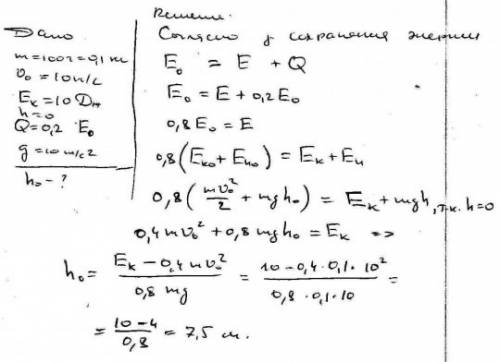 Дано
m=100г=0,1 кг
υ₀=10м/с
Eₖ=10 Дж
h=0
Q=0,2 E₀
g=10 м/с2
h₀ - ?
Решение:
Согласно з сохранения энергии
E₀ = E + Q
E₀ = E + 0,2E₀
0,8E₀ = E
0,8(Eₖ₀ + Eₙ₀) = Eₖ + Eₙ
0,8(mυ₀²/2 + mgh₀) = Eₖ + mgh, т.к. h=0
0,4mυ₀² + 0,8mgh₀ = Eₖ =>
h₀ = (Eₖ - 0,4mυ₀²)/(0,8mg) = (10 - 0,4·0,1·10²)/(0,8·0,1·10) =
= (10-4)/0,8 = 7,5 м.